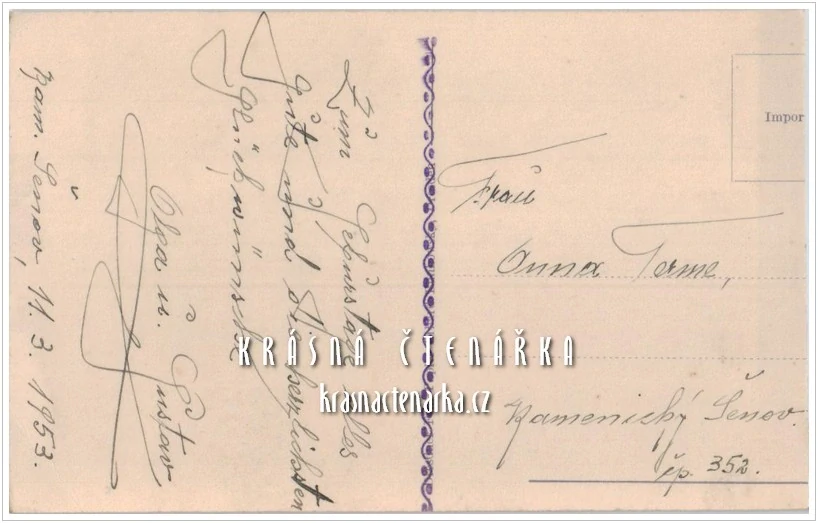 Zum Geburtstage alles
Gute und die herzlichsten
Glückwünsche
Olga u. Gustav
Kam. Šenov, 11. 3. 1953.
Impor
Frau
Anna Terme,
Kamenický Šenov.
čp. 352.
KRÁSNÁ ČTENÁŘKA
krasnactenarka.cz